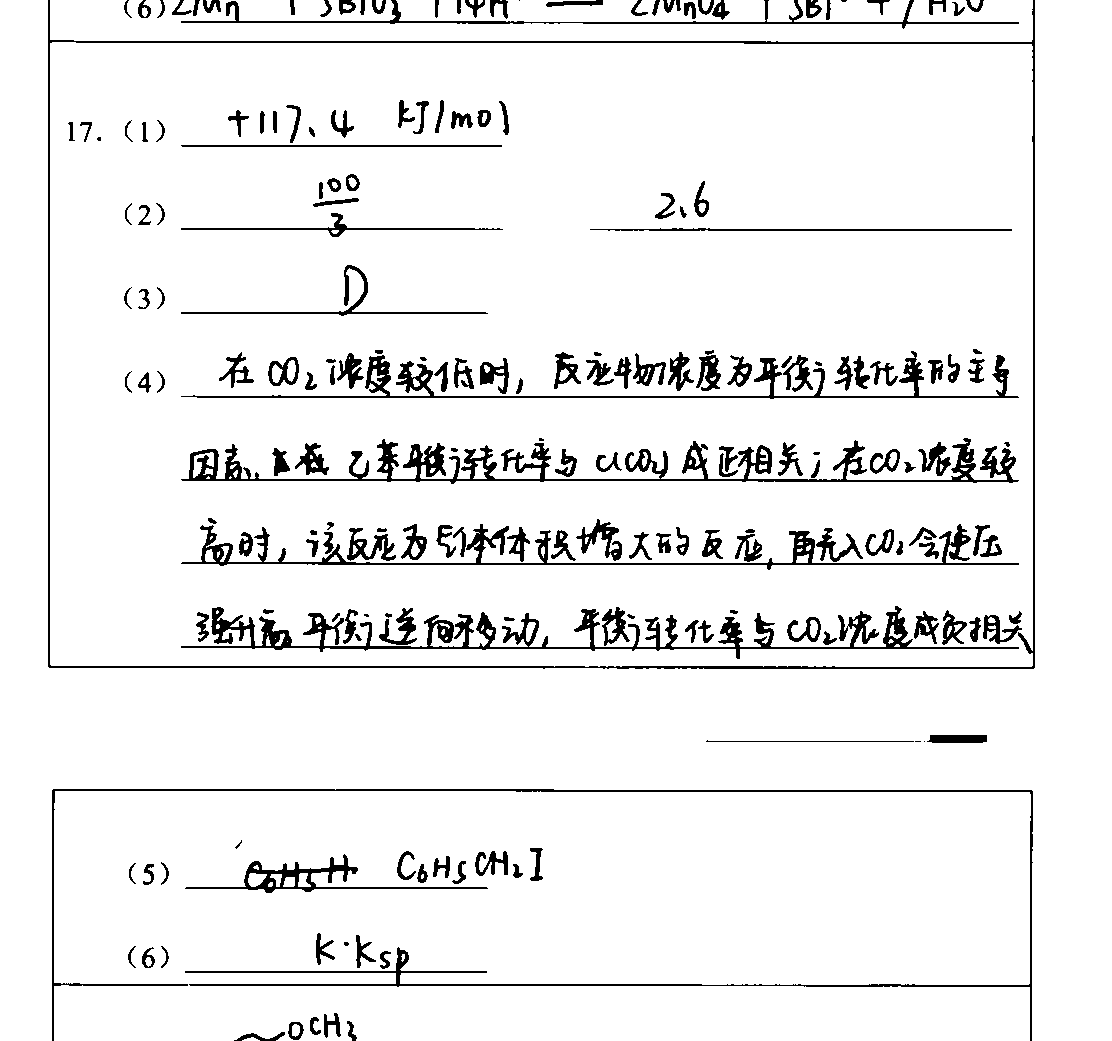 (6) 2Mn + 5BiO3 + 14H = 2MnO4 + 5Bi + 7H2O
17. (1) +117.4 kJ/mol
(2) 100/3 2.6
(3) D
(4) 在CO2浓度较低时，反应物浓度为平衡转化率的主导
因素，乙苯平衡转化率与c(CO2)成正相关；在CO2浓度较
高时，该反应为气体体积增大的反应，再充入CO2会使压
强升高，平衡逆向移动，平衡转化率与CO2浓度成负相关
(5) C6H5CH2I
(6) K·Ksp
OCH3